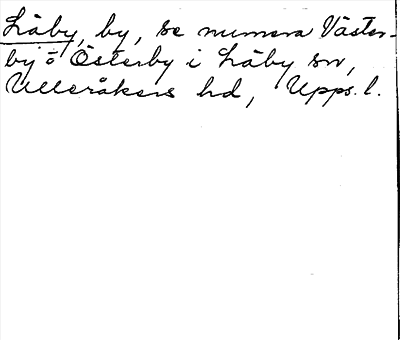 Läby, by, se numera Väster-
by o Österby i Läby sn,
Ulleråkers hd, Upps. l.